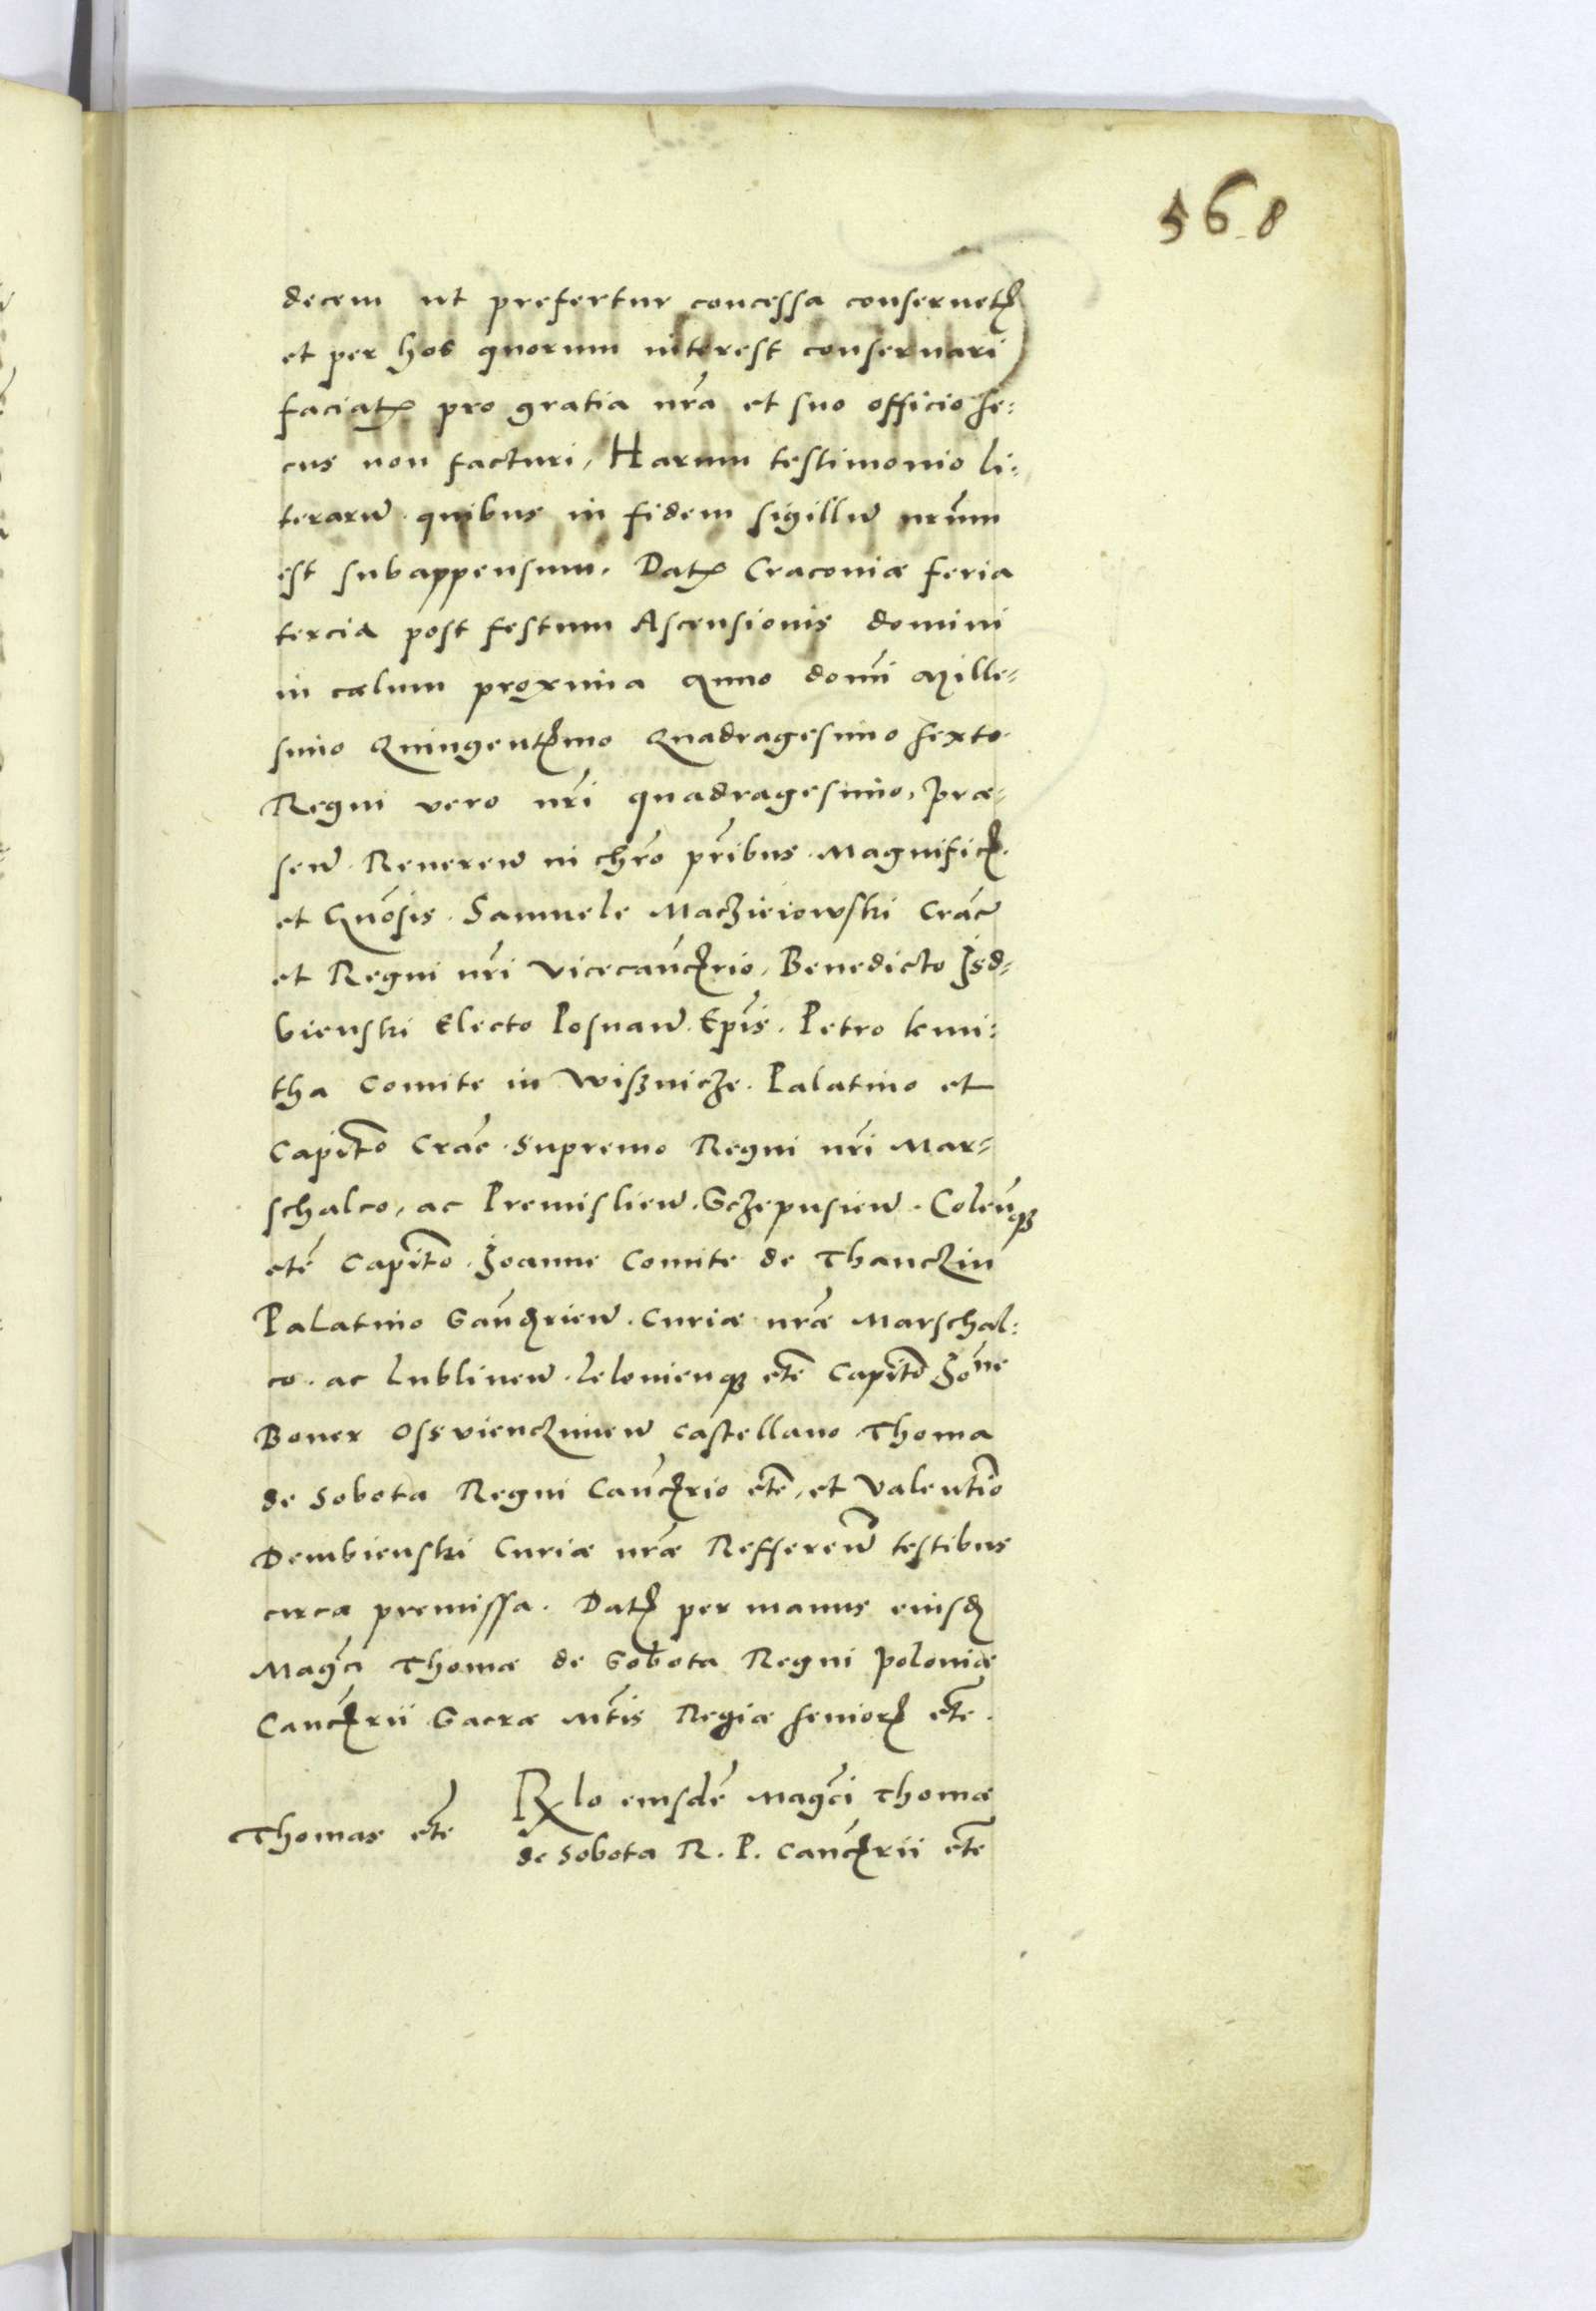 568
decem ut prefertur concessa conseruetꝭ
et per hos quorum interest conseruari
faciatꝭ pro gratia nrã et suo officio se:
cus non facturi, Harum testimonio li:
terarũ quibus in fidem sigillũ nrũm
est subappensum. Datꝭ Cracouiæ feria
tercia post festum Ascensionis domini
in cælum proxima Anno domĩ Mille:
simo Quingentꝭmo Quadragesimo sexto
Regni vero nrĩ quadragesimo, Præ:
sen̄. Reueren̄ in chrõ prĩbus. Magnificꝭ.
et Gñosis. Samuele Maczieiowski Crac̄
et Regni nrĩ Vicecanc̄ꝭrio, Benedicto Isd:
bienski Electo Posnan̄. Ep̃is. Petro kmi:
tha Comite in Wisznicze. Palatino et
Capitõ Crac̄. Supremo Regni nrĩ Mar:
schalco, ac Premislien̄. Sczepusien̄. Colen̄qꝫ
etc̄ Capitõ. Joanne Comite de Thanczin
Palatino Sandꝭrien̄. Curiæ nræ̃ Marschal:
co. ac Lublinen̄. Lelouienqꝫ etc̄ Capitõ Joñne
Boner Osswienczimen̄ Castellano Thoma
de Sobota Regni Canc̄ꝭrio etc̄, et Valentĩo
Dembienski Curiæ nræ̃ Refferen̄ testibus
circa premissa. Datꝭ per manus eiusdꝭ
Magc̃i Thomæ de Sobota Regni Poloniæ
Canc̄ꝭrii Sacræ Mtĩs Regiæ seniorꝭ etc̄.
Rℓo eiusdẽ Magc̃i Thomæ
de Sobota R. P. Canc̄ꝭrii etc̄
Thomas etc̄